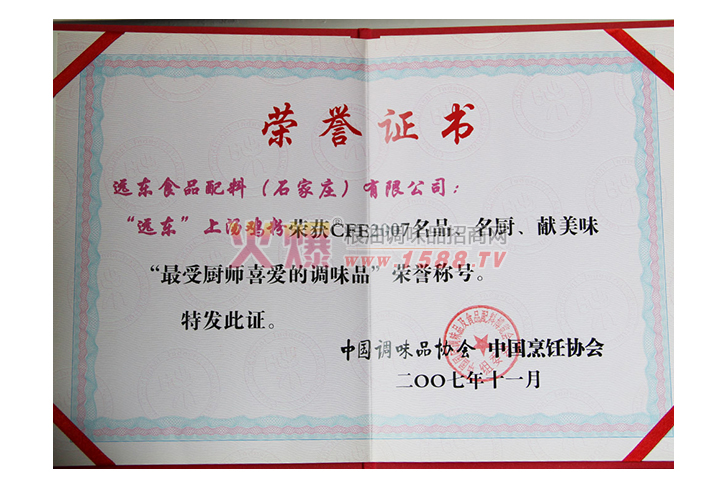 荣誉证书
远东食品配料（石家庄）有限公司：
“远东”上汤鸡粉荣获CFE2007名品、名厨、献美味
火爆®粮油调味品招商网
www.1588.TV
“最受厨师喜爱的调味品”荣誉称号。
特发此证。
中国调味品协会 中国烹饪协会
二〇〇七年十一月